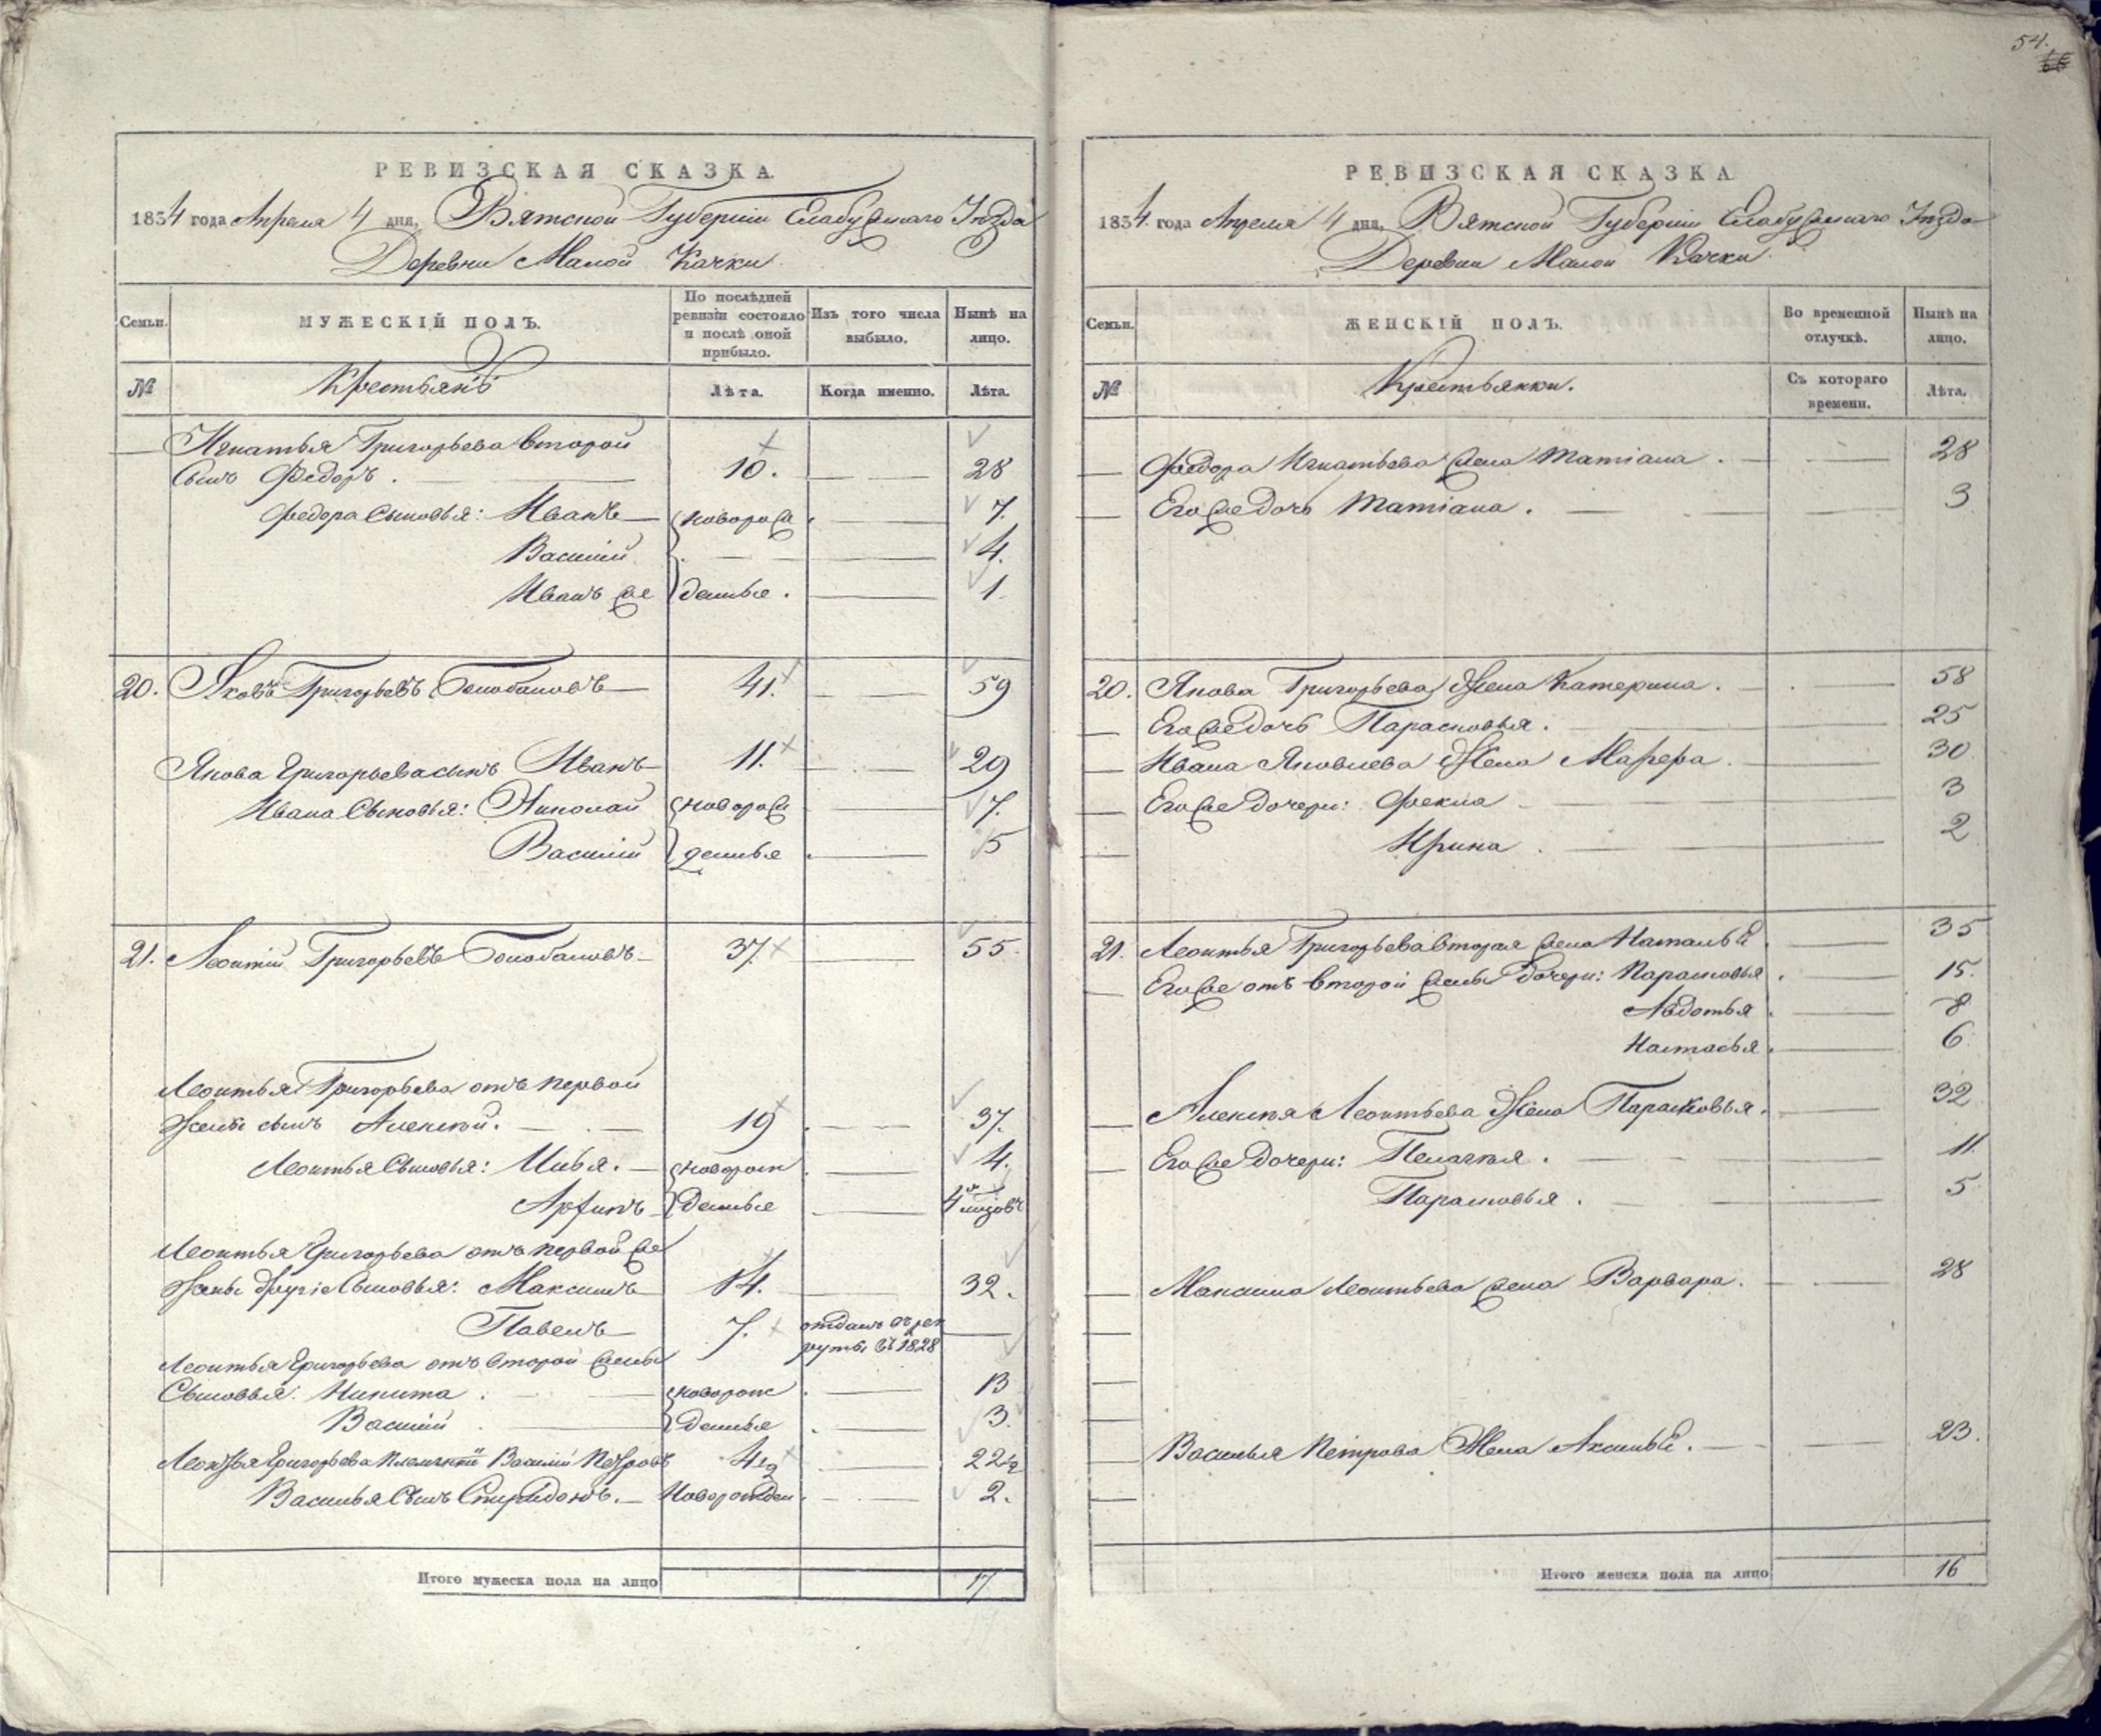 54.
РЕВИЗСКАЯ СКАЗКА
1834 года Апреля 4 дня, Вятской Губернии Елабужскаго Уѣзда
Деревни Малой Качки
Семьи. МУЖЕСКІЙ ПОЛЪ. По послѣдней ревизіи состояло и послѣ оной прибыло. Изъ того числа выбыло. Нынѣ на лицо.
№ Крестьянъ Лѣта. Когда именно. Лѣта.
Игнатья Григорьева второй
сынъ Федоръ. 10. 28
Федора сыновья: Иванъ новорож 7.
Василій 4.
Иванъ же денные. 1.
20. Яковъ Григорьевъ Голобаковъ 41. 59
Якова Григорьева сынъ Иванъ 11. 29
Ивана сыновья: Николай новорож 7.
Василій денные 5
21. Леонтій Григорьевъ 37. 55.
Леонтья Григорьева отъ первой
жены сынъ Алексѣй. 19 37.
сыновья: Илья. новорож 4.
денные 4
Леонтья Григорьева отъ первой же
жены другіе сыновья: Максимъ 14. 32.
Павелъ 7. отданъ въ рек
руты въ 1828
Леонтья Григорьева отъ второй жены
сыновья: Никита новорож 13
Василій денные 3.
Леонтья Григорьева племянникъ Василій Петровъ 4½ 22½
Василья сынъ Спиридонъ. Новорожден 2.
Итого мужеска пола на лицо 17
РЕВИЗСКАЯ СКАЗКА
1834 года Апреля 4 дня, Вятской Губерніи Елабужскаго Уѣзда
Деревни Малой Качки.
Семьи. ЖЕНСКІЙ ПОЛЪ. Во временной отлучкѣ. Нынѣ на лицо.
№ Крестьянки. Съ котораго времени. Лѣта.
Федора Игнатьева жена Матіана. 28
Его же дочь Матіана. 3
20. Якова Григорьева жена Катерина. 58
Его же дочь Парасковья. 25
Ивана Яковлева жена Марфа. 30
Его же дочери: Фекла 3
Ирина 2
21. Леонтья Григорьева вторая жена Наталья 35
Его же отъ второй жены дочери: Парасковья 15.
Авдотья 8
Настасья 6
Алексѣя Леонтьева жена Парасковья. 32
Его же дочери: Пелагѣя. 11.
Парасковья. 5
Максима Леонтьева жена Варвара. 28
Василья Петрова жена Аксинья. 23.
Итого женска пола на лицо 16